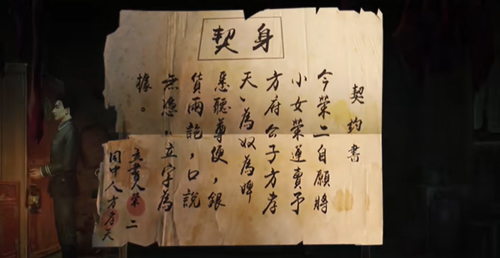 身契
契約書
今榮二自願將
小女榮蓮賣予
方府公子方孝
天,為奴為婢
悉聽尊便,銀
貨兩訖,口說
無憑,立字為
據。
立書人榮二
同中人方天